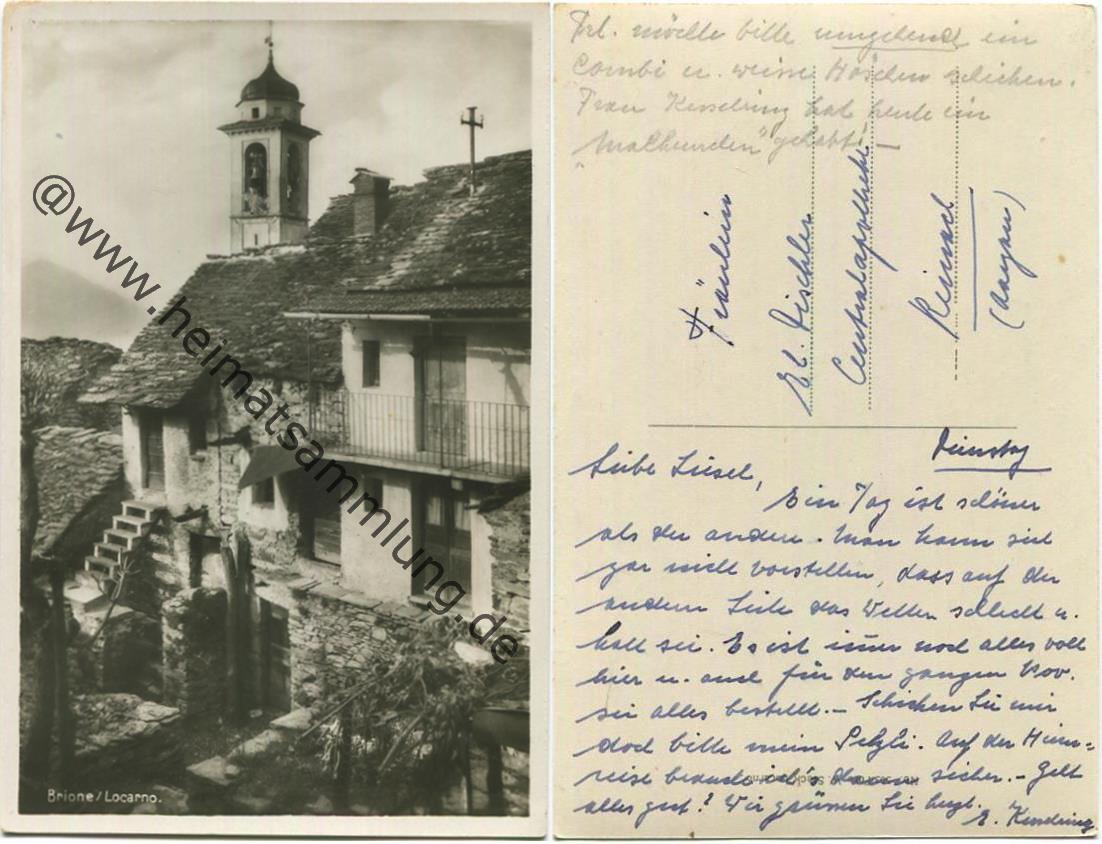 @www.heimatsammlung.de
Brione/Locarno.
Frl. möchte bitte umgehend ein
Combi u. weisse Höschen schicken.
Frau Kesselring hat heute ein
gehabt! —
Fräulein
El. Tischler
Centralapotheke
Reinach
(Aargau)
Dienstag
Liebe Liesel,
Ein Tag ist schöner
als der andere. Man kann sich
gar nicht vorstellen, dass auf der
andern Seite das Wetter schlecht u.
kalt sei. Es ist immer noch alles voll
hier u. auch für den ganzen Nov.
sei alles bestellt. — Schicken Sie mir
doch bitte mein Pelzli. Auf der Heim=
reise brauch ich's dann sicher. — Gelt
alles gut? Wir grüssen Sie herzl.
E. Kesselring